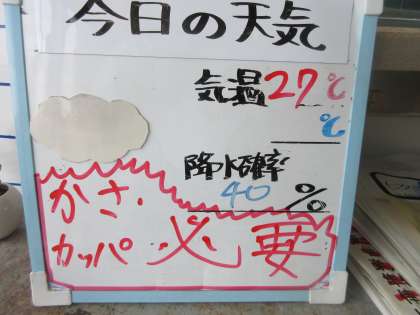 今日の天気
気温27℃
℃
降水確率
40%
かさ、
カッパ必要